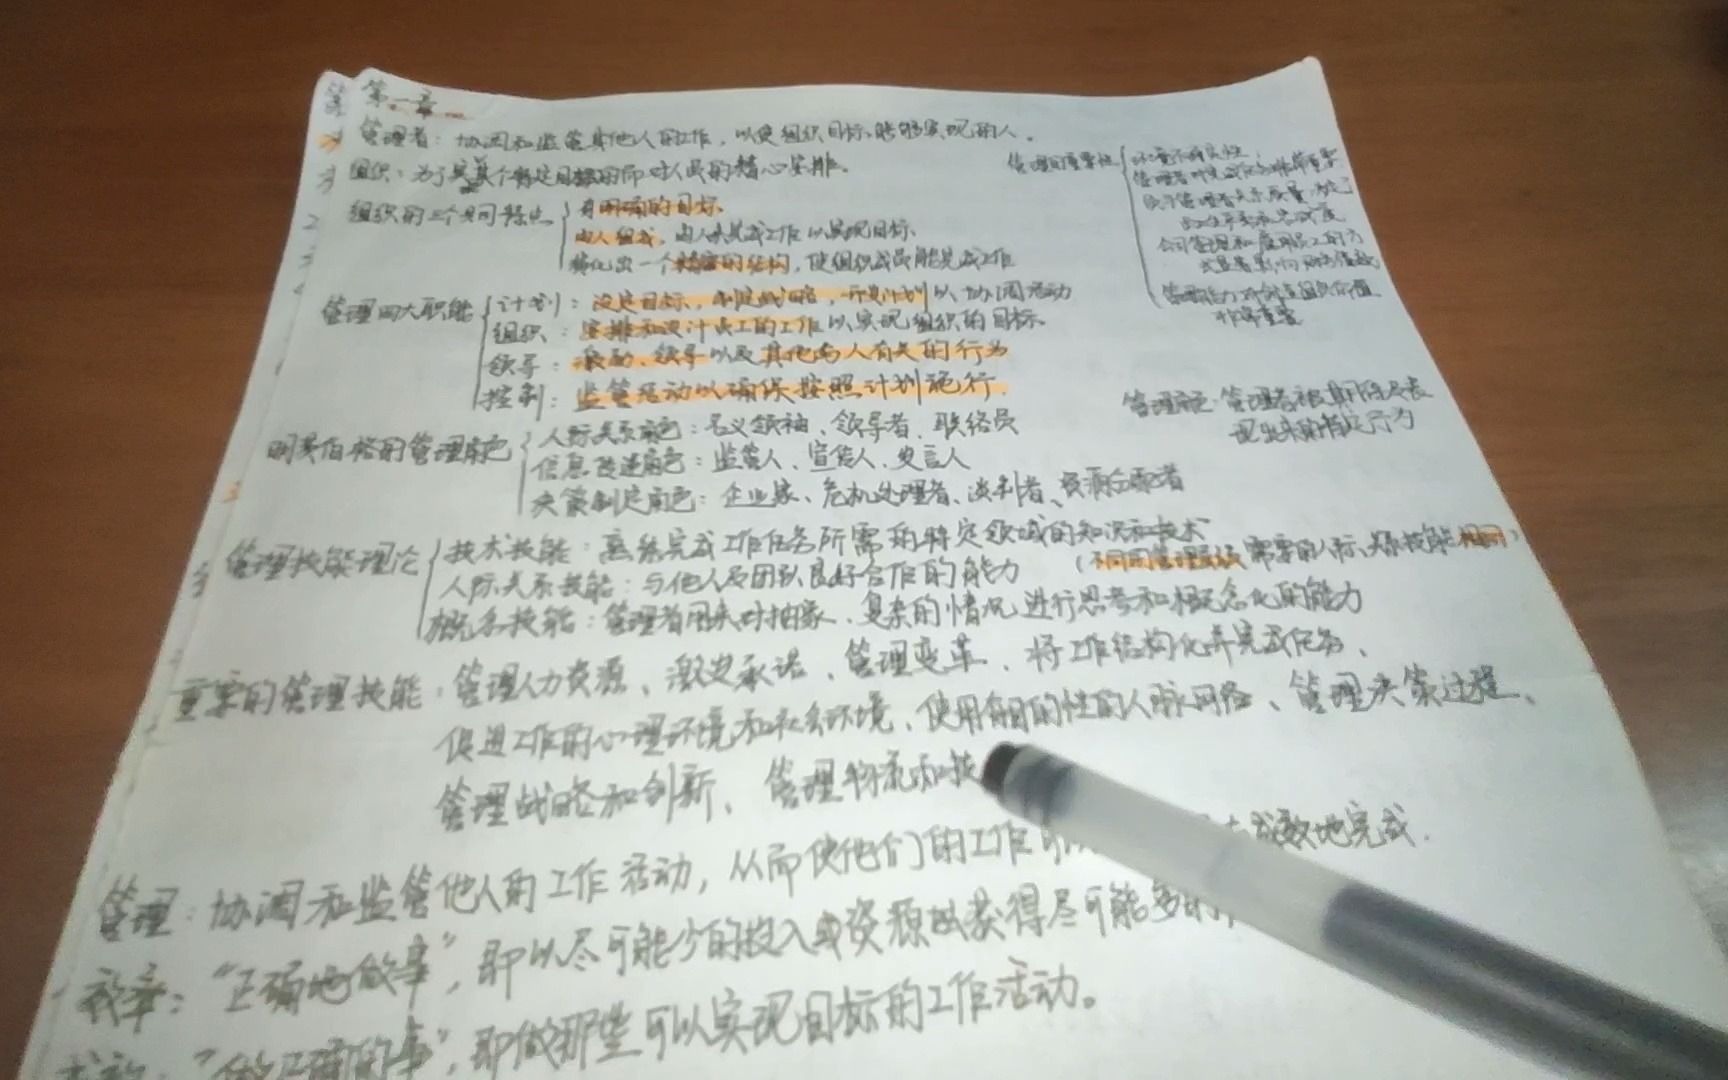 第一章
管理者：协调和监管其他人的工作，以使组织目标能够实现的人。
组织：为了实现某个特定目标而对人员的精心安排。
组织的三个共同特点
有明确的目标。
由人组成，由人来完成工作以实现目标。
演化出一个精密的结构，使组织成员能完成工作
管理的重要性
管理四大职能
计划：设定目标，制定战略，开发计划以协调活动
组织：安排和设计员工的工作以实现组织的目标
领导：激励、领导以及其他与人有关的行为
控制：监管活动以确保按照计划施行.
非常重要
明茨伯格的管理角色
人际关系角色：名义领袖、领导者、联络员
信息传递角色：监管人、宣传人、发言人
决策制定角色：企业家、危机处理者、谈判者、资源分配者
管理角色：管理者被期待
现出来的特定行为
管理技能理论
技术技能：熟练完成工作任务所需的特定领域的知识和技术
人际关系技能：与他人及团队良好合作的能力 （不同的管理层级需要的人际关系技能相同）
概念技能：管理者用来对抽象、复杂的情况进行思考和概念化的能力
重要的管理技能：管理人力资源、激发承诺、管理变革、将工作结构化并完成任务、
促进工作的心理环境和社会环境、使用有目的性的人脉网络、管理决策过程、
管理战略和创新、管理物流和技
管理：协调和监管他人的工作活动，从而使他们的工作可以 成效地完成.
效率：“正确地做事”，即以尽可能少的投入或资源 获得尽可能多的
“做正确的事”，即做那些可以实现目标的工作活动。